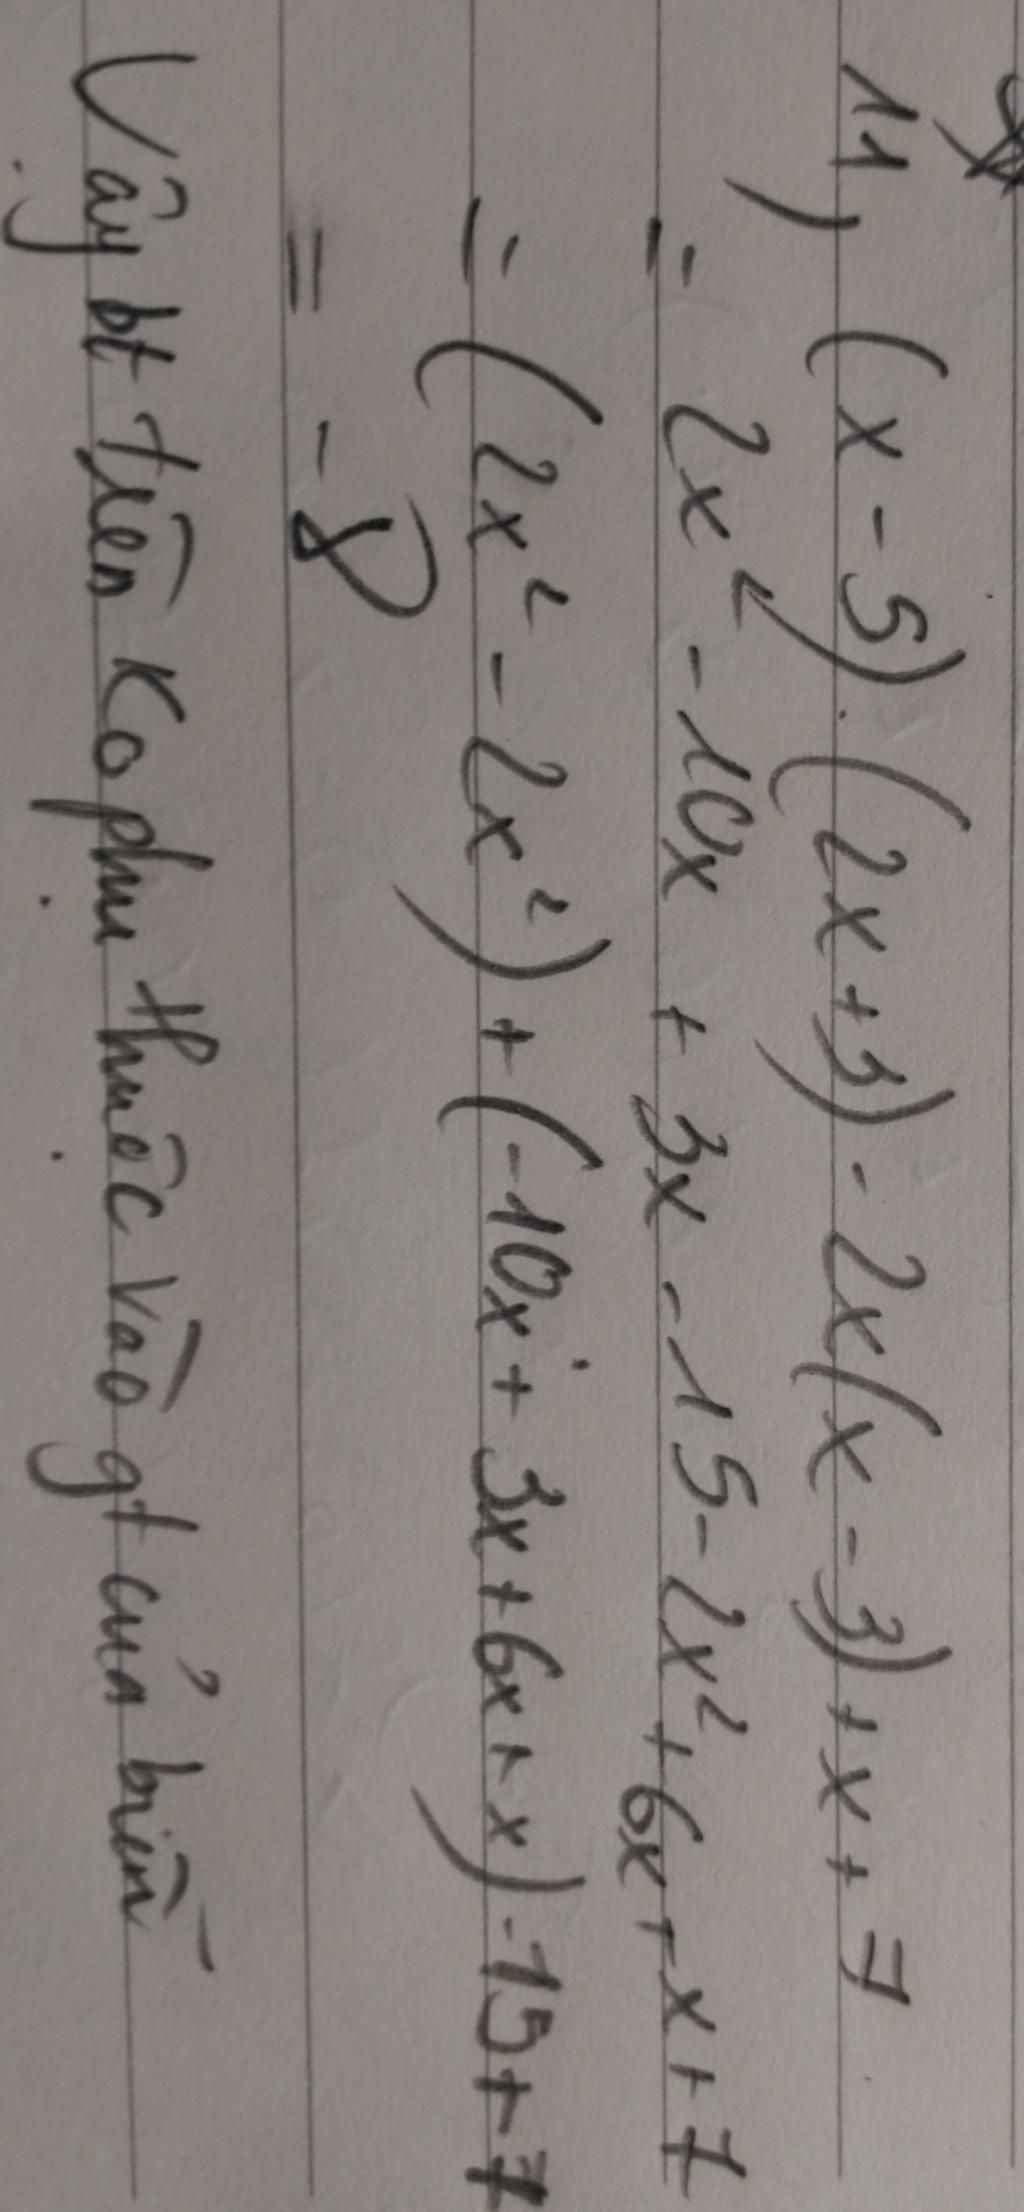 11) (x - 5).(2x + 3) - 2x(x - 3) + x + 7
= 2x² - 10x + 3x - 15 - 2x² + 6x + x + 7
= (2x² - 2x²) + (-10x + 3x + 6x + x) - 15 + 7
= - 8
Vậy bt trên ko phụ thuộc vào gt của biến